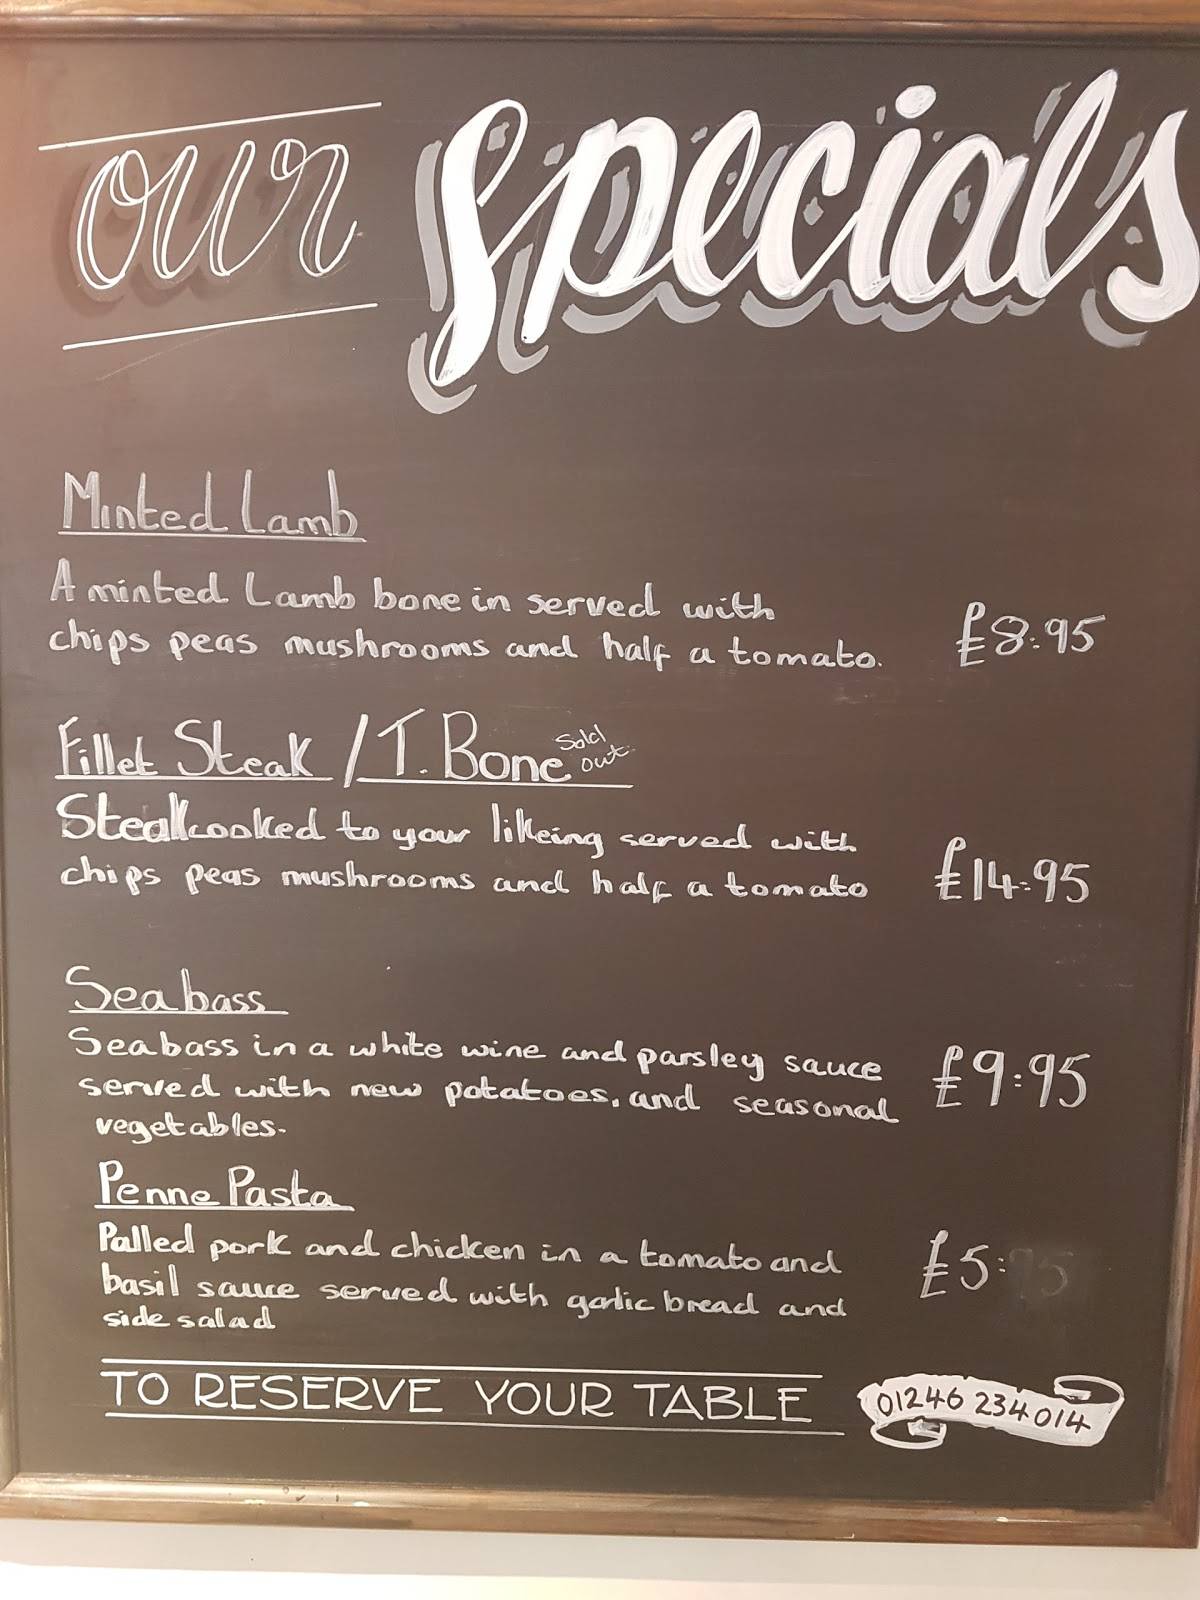 our Specials
Minted Lamb
A minted Lamb bone in served with
chips peas mushrooms and half a tomato. £8.95
Fillet Steak / T. Bone Sold out
Steak cooked to your likeing served with
chips peas mushrooms and half a tomato £14.95
Sea bass
Sea bass in a white wine and parsley sauce £9.95
served with new potatoes, and seasonal
vegetables.
Penne Pasta
Palled pork and chicken in a tomato and £5.
basil sauce served with garlic bread and
side salad
TO RESERVE YOUR TABLE 01246 234 014